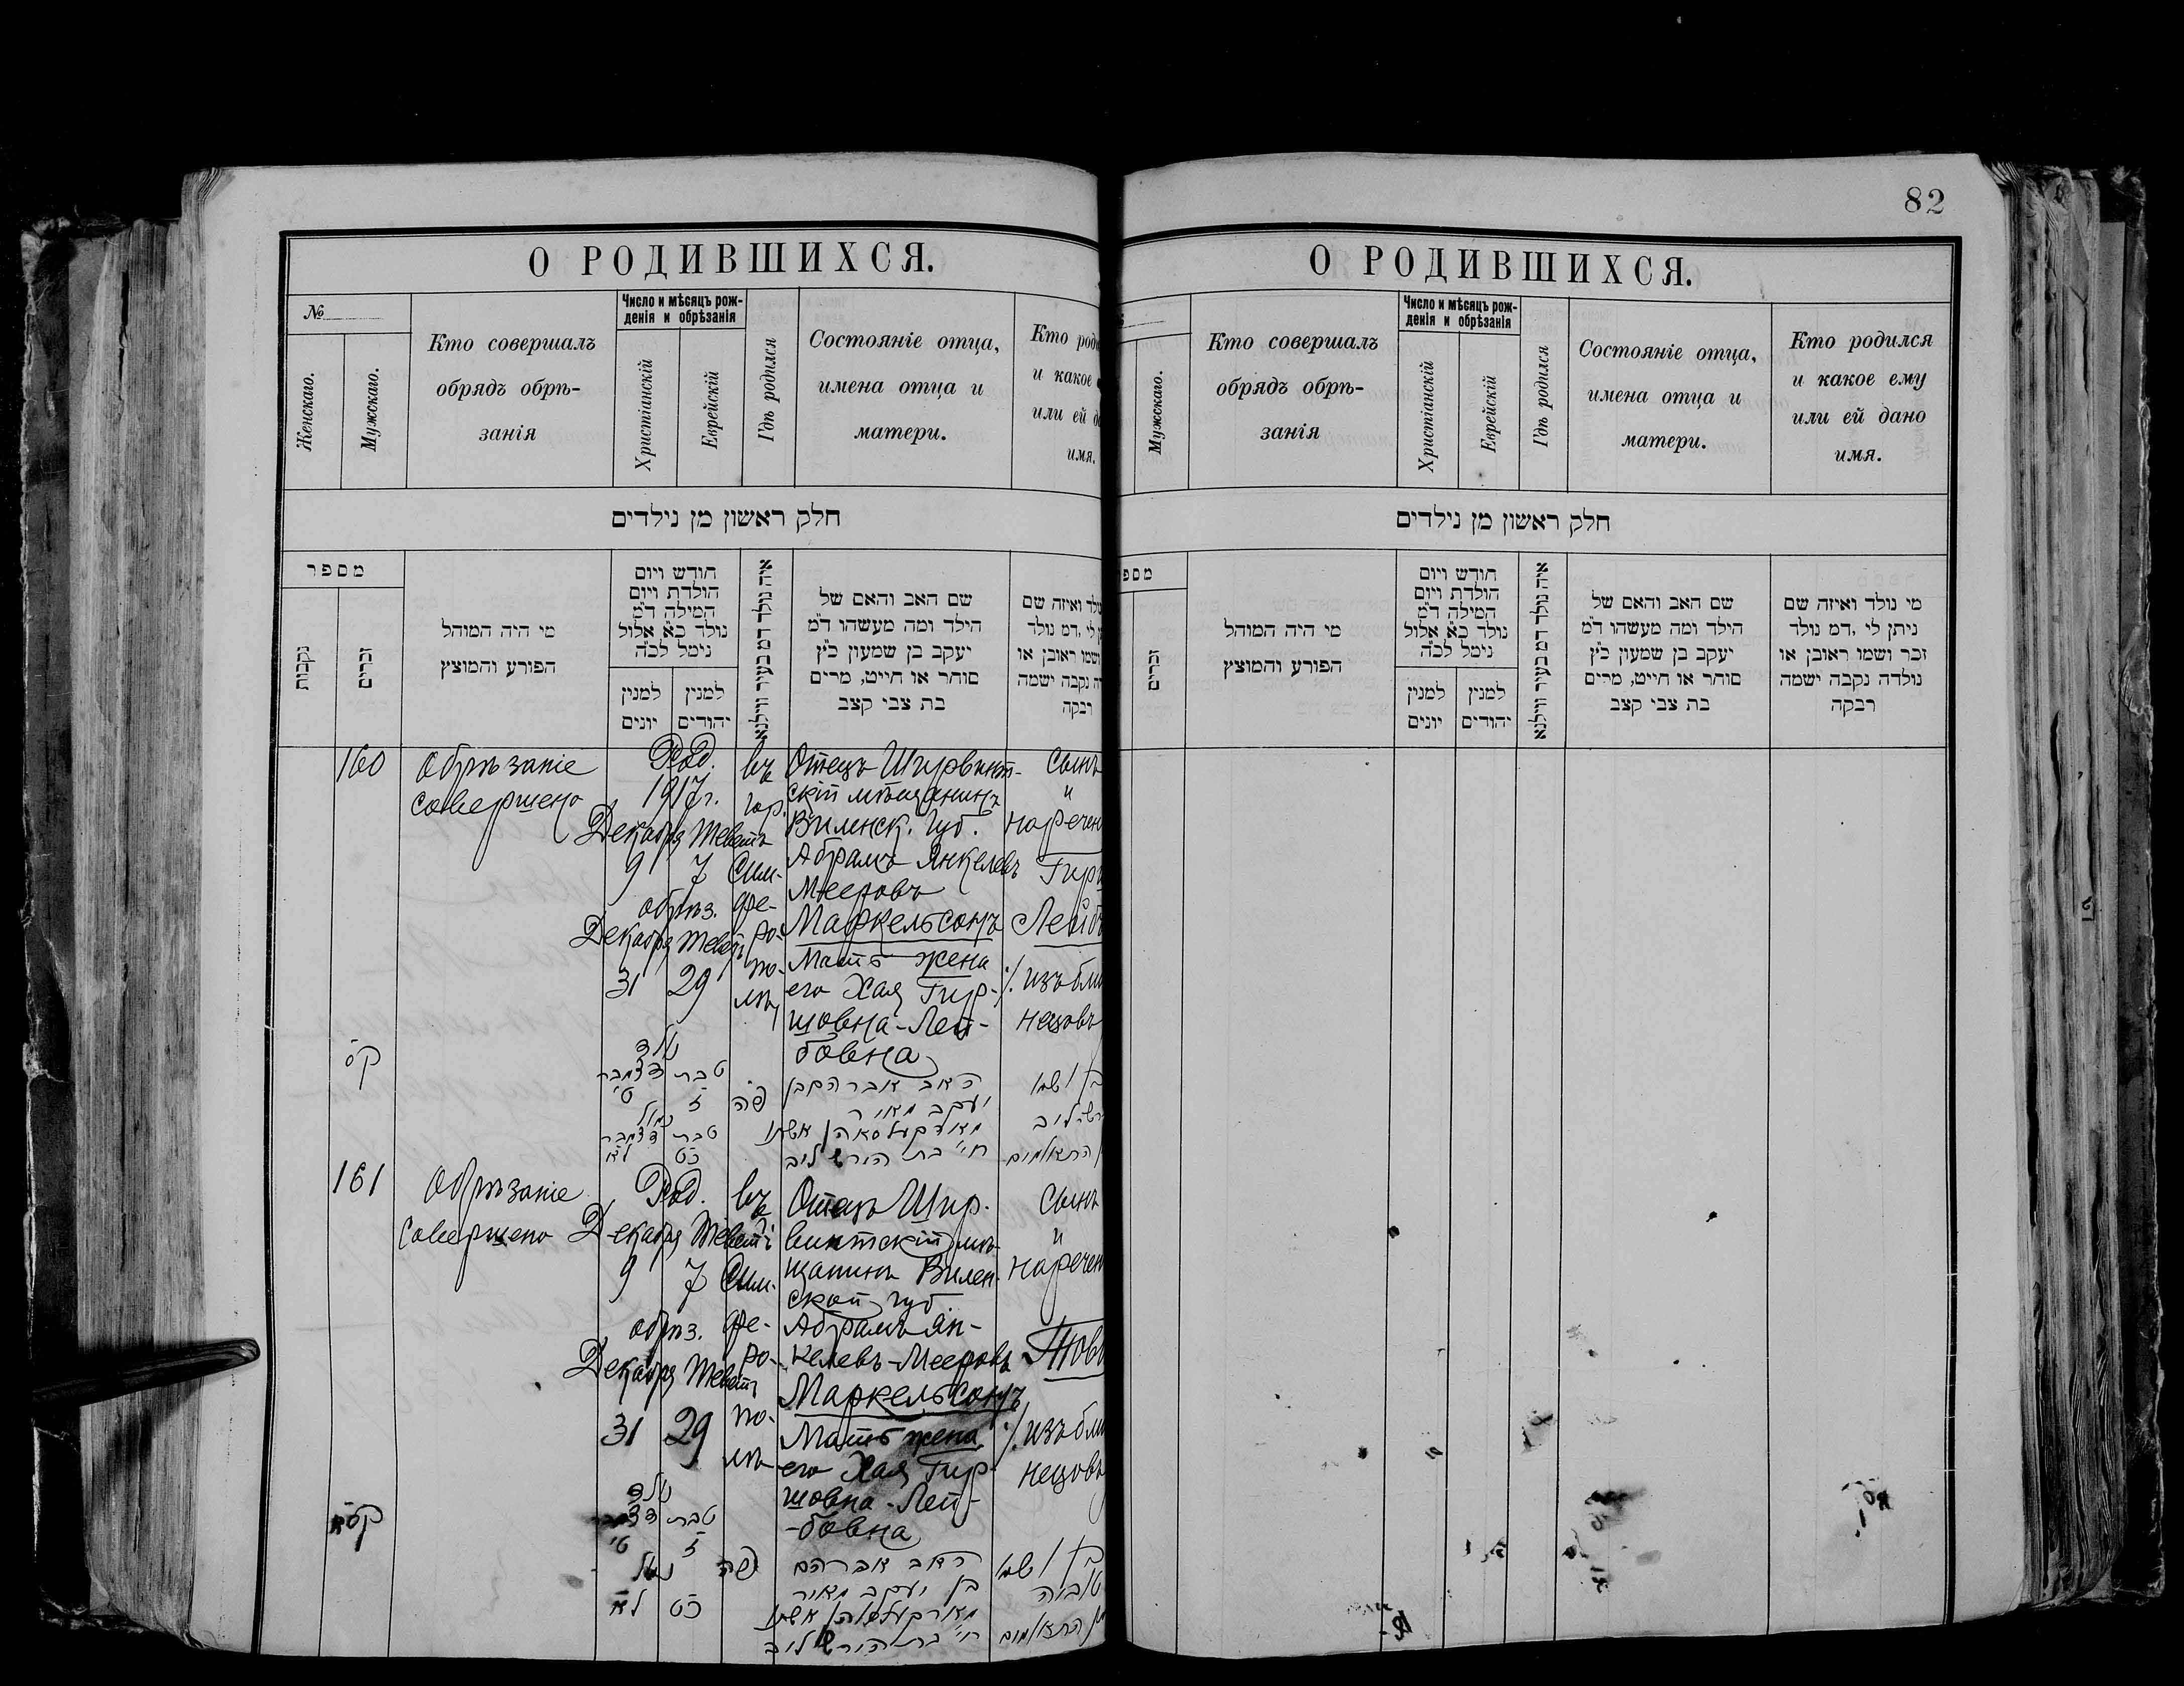 82
О РОДИВШИХСЯ.
№
Женскаго.
Мужскаго.
Кто совершалъ
обрядъ обрѣ-
занія
Число и мѣсяцъ рож-
денія и обрѣзанія
Христіанскій
Еврейскій
Гдѣ родился
Состояніе отца,
имена отца и
матери.
Кто род
и какое
или ей д
имя.
חלק ראשון מן נילדים
מספר
נקבות
זכרים
מי היה המוהל
הפורע והמוצץ
חודש ויום
הולדת ויום
המילה ד"מ
נולד כ"א אלול
נימל לכ"ה
למנין
יונים
למנין
יהודים
איה נולד דמ בעיר ווילנא
שם האב והאם של
הילד ומה מעשהו ד"מ
יעקב בן שמעון כ"ץ
סוחר או חייט, מרים
בת צבי קצב
ולד ואיזה שם
לי ,דמ נולד
ושמו ראובן או
נקבה ישמה
רבקה
160
Обрѣзаніе
совершено
Род.
1917 г.
Декабря Теветъ
9 7
обрѣз.
Декабря Теветъ
31 29
въ
гор.
Сим-
фе-
ро-
по-
лѣ
Отецъ Ширвинт-
скій мѣщанинъ
Виленск. Губ.
Абрамъ Янкелевъ
Мееровъ
Маркельсонъ
Мать жена
его Хая Гир-
шовна-Лей-
бовна
Сынъ
и
наречен
Гирш
Лейб
изъ бли
нецовъ
קס
נולד
טבת דצמבר
ז ט'
נמול
טבת דצמבר
כט לא
פה
האב אברהם בן
יעקב מאיר
מארקעלסאהן אשתו
חי' בת הירש ליב
בן ושמו
הירש ליב
מן התאומים
161
Обрѣзаніе
совершено
Род.
Декабря Теветъ
9 7
обрѣз.
Декабря Теветъ
31 29
въ
Сим-
фе-
ро-
по-
лѣ
Отецъ Шир-
винтскій мѣ-
щанинъ Вилен-
ской губ.
Абрамъ Ян-
келевъ-Мееровъ
Маркельсонъ
Мать жена
его Хая Гир-
шовна-Лей-
-бовна
Сынъ
и
наречен
Товь
изъ бли
нецовъ
קסא
נולד
טבת דצמבר
ז ט'
נמול
כט לא
פה
האב אברהם
בן יעקב מאיר
מארקעלסאהן אשתו
חי' בת הירש ליב
בן ושמו
טוביה
מן התאומים
О РОДИВШИХСЯ.
Мужскаго.
Кто совершалъ
обрядъ обрѣ-
занія
Число и мѣсяцъ рож-
денія и обрѣзанія
Христіанскій
Еврейскій
Гдѣ родился
Состояніе отца,
имена отца и
матери.
Кто родился
и какое ему
или ей дано
имя.
חלק ראשון מן נילדים
מספ
זכרים
מי היה המוהל
הפורע והמוצץ
חודש ויום
הולדת ויום
המילה ד"מ
נולד כ"א אלול
נימל לכ"ה
למנין
יונים
למנין
יהודים
איה נולד דמ בעיר ווילנא
שם האב והאם של
הילד ומה מעשהו ד"מ
יעקב בן שמעון כ"ץ
סוחר או חייט, מרים
בת צבי קצב
מי נולד ואיזה שם
ניתן לי ,דמ נולד
זכר ושמו ראובן או
נולדה נקבה ישמה
רבקה